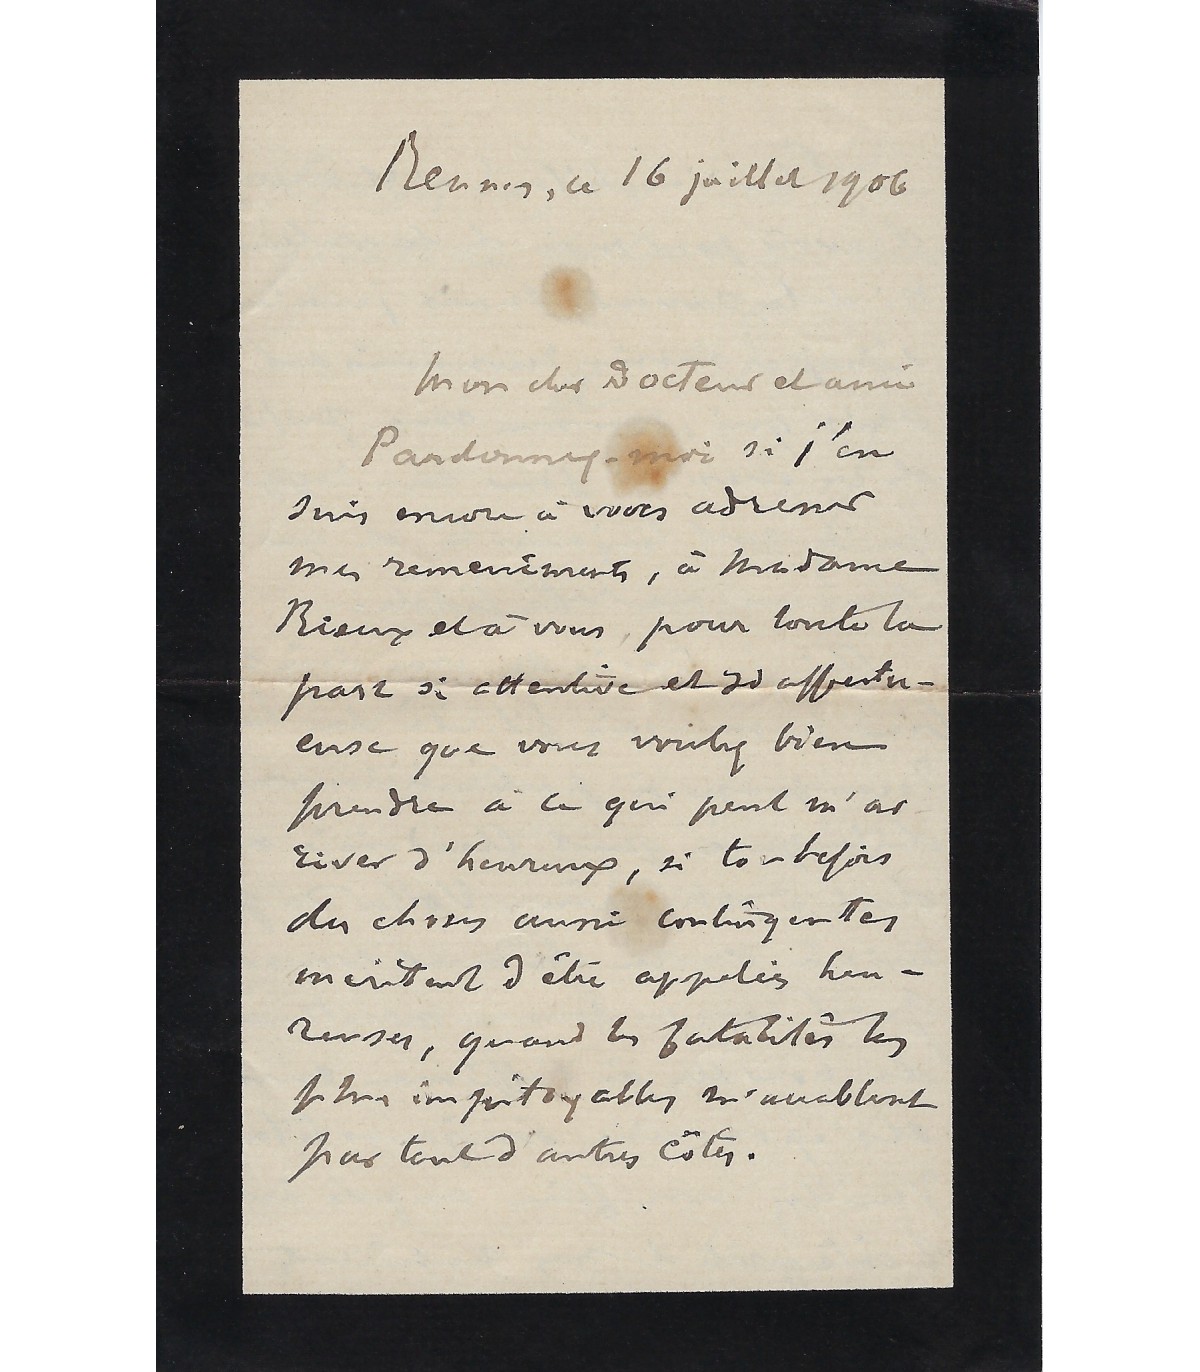 Rennes, ce 16 juillet 1906
Mon cher Docteur et ami
Pardonnez-moi si j'en
suis encore à vous adresser
mes remerciements, à Madame
Rieux et à vous, pour toute la
part si attentive et si affectu-
euse que vous voulez bien
prendre à ce qui peut m'ar
river d'heureux, si toutefois
des choses aussi contingentes
méritent d'être appelées heu-
reuses, quand les fatalités les
plus impitoyables m'accablent
par tant d'autres côtés.